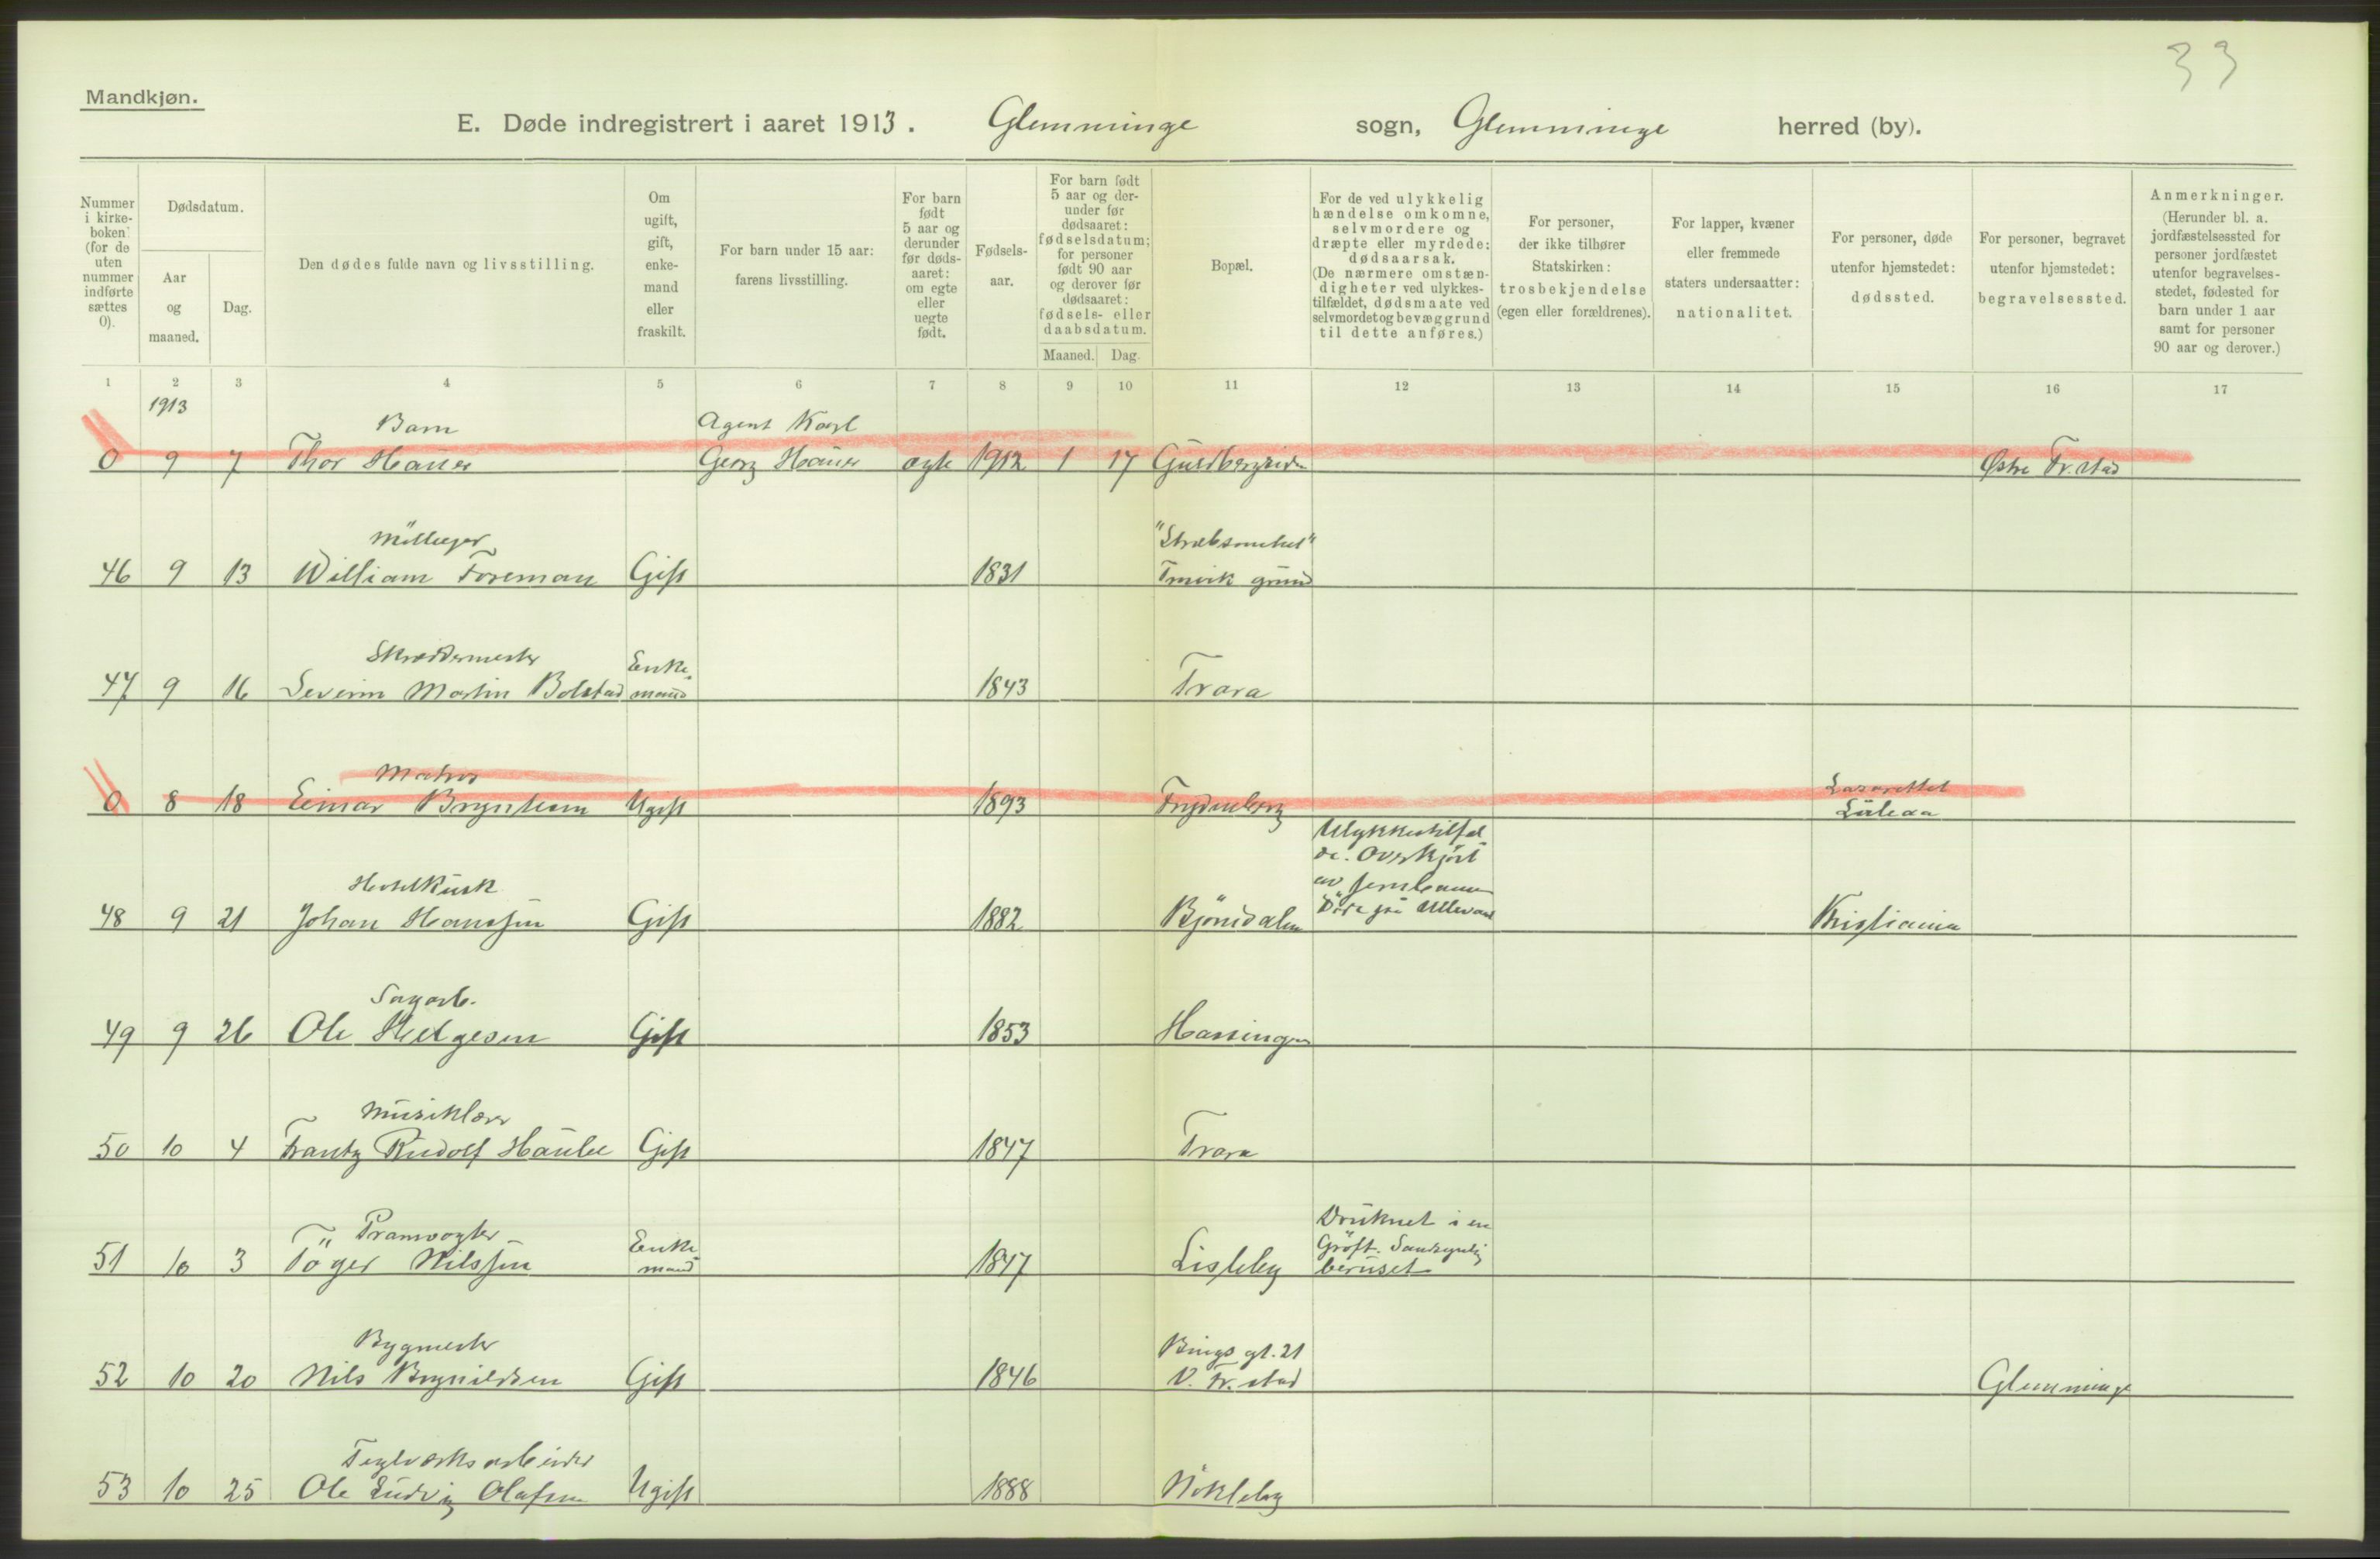 33
Mandkjøn.
E. Døde indregistrert i aaret 1913. Glemminge sogn, Glemminge herred (by).
Nummer i kirke-boken: (for de uten nummer indførte sættes 0).
Dødsdatum.
Aar og maaned.
Dag.
Den dødes fulde navn og livsstilling.
Om ugift, gift, enke-mand eller fraskilt.
For barn under 15 aar: farens livsstilling.
For barn født 5 aar og derunder før døds-aaret: om egte eller uegte født.
Fødsels-aar.
For barn født 5 aar og der-under før dødsaaret: fødselsdatum; for personer født 90 aar og derover før dødsaaret: fødsels- eller daabsdatum.
Maaned. Dag.
Bopæl.
For de ved ulykkelig hændelse omkomne, selvmordere og dræpte eller myrdede: dødsaarsak. (De nærmere omstæn-digheter ved ulykkes-tilfældet, dødsmaate ved selvmordet og bevæggrund til dette anføres.)
For personer, der ikke tilhører Statskirken: trosbekjendelse (egen eller forældrenes).
For lapper, kvæner eller fremmede staters undersaatter: nationalitet.
For personer, døde utenfor hjemstedet: dødssted.
For personer, begravet utenfor hjemstedet: begravelsessted.
Anmerkninger. (Herunder bl. a. jordfæstelsessted for personer jordfæstet utenfor begravelses-stedet, fødested for barn under 1 aar samt for personer 90 aar og derover.)
1 2 3 4 5 6 7 8 9 10 11 12 13 14 15 16 17
1913
Barn Agent Karl
0 9 7 Thor Hauer Georg Hauer egte 1912 1 17 Østre Fr.stad
Mölleeier "Strebsomhet"
46 9 13 William Foreman Gift 1831 grund
Skræddermester Enke-
47 9 16 Severin Martin Bolstad mand 1843 Trara
Matros Lasarettet
0 8 18 Einar Ugift 1893 Frydenberg Luleaa
Ulykkestilfæl
de. Overkjört
av jernbanen
Hotelkusk
48 9 21 Johan Hanssen Gift 1882 Bjönidalen Döde paa Ullevaal Kristiania
Sagarb.
49 9 26 Ole Helgesen Gift 1853 Hassingen
Musiklærer
50 10 4 Frantz Rudolf Gift 1847 Trara
Pramvogter Enke Druknet i en
Gröft. Sandsynlig
51 10 3 Töger Nilssen mand 1847 Lisleby beruset
Bygmester Bings gt. 21
52 10 20 Nils Brynildsen Gift 1846 V. Fr.stad Glemminge
Teglverksarbeider
53 10 25 Ole Ludvig Olafsen Ugift 1888 Nökleby